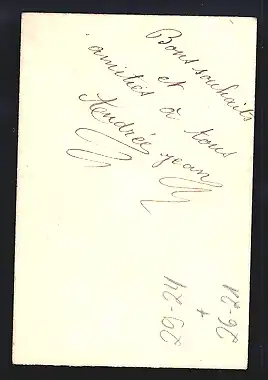 Bons souhaits
et
amitiés à tous
Andrée Jean
26-21
+
29-24